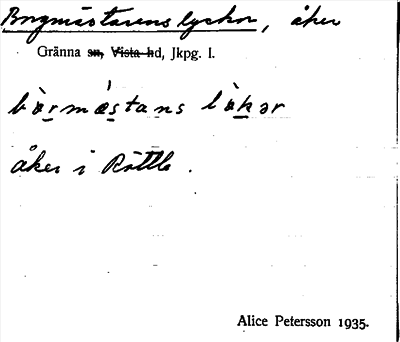 Borgmästarens lyckor, åker
Gränna sn, Vista hd, Jkpg. l.
bòrmǽstans lỳkər
åker i Röttle.
Alice Petersson 1935.